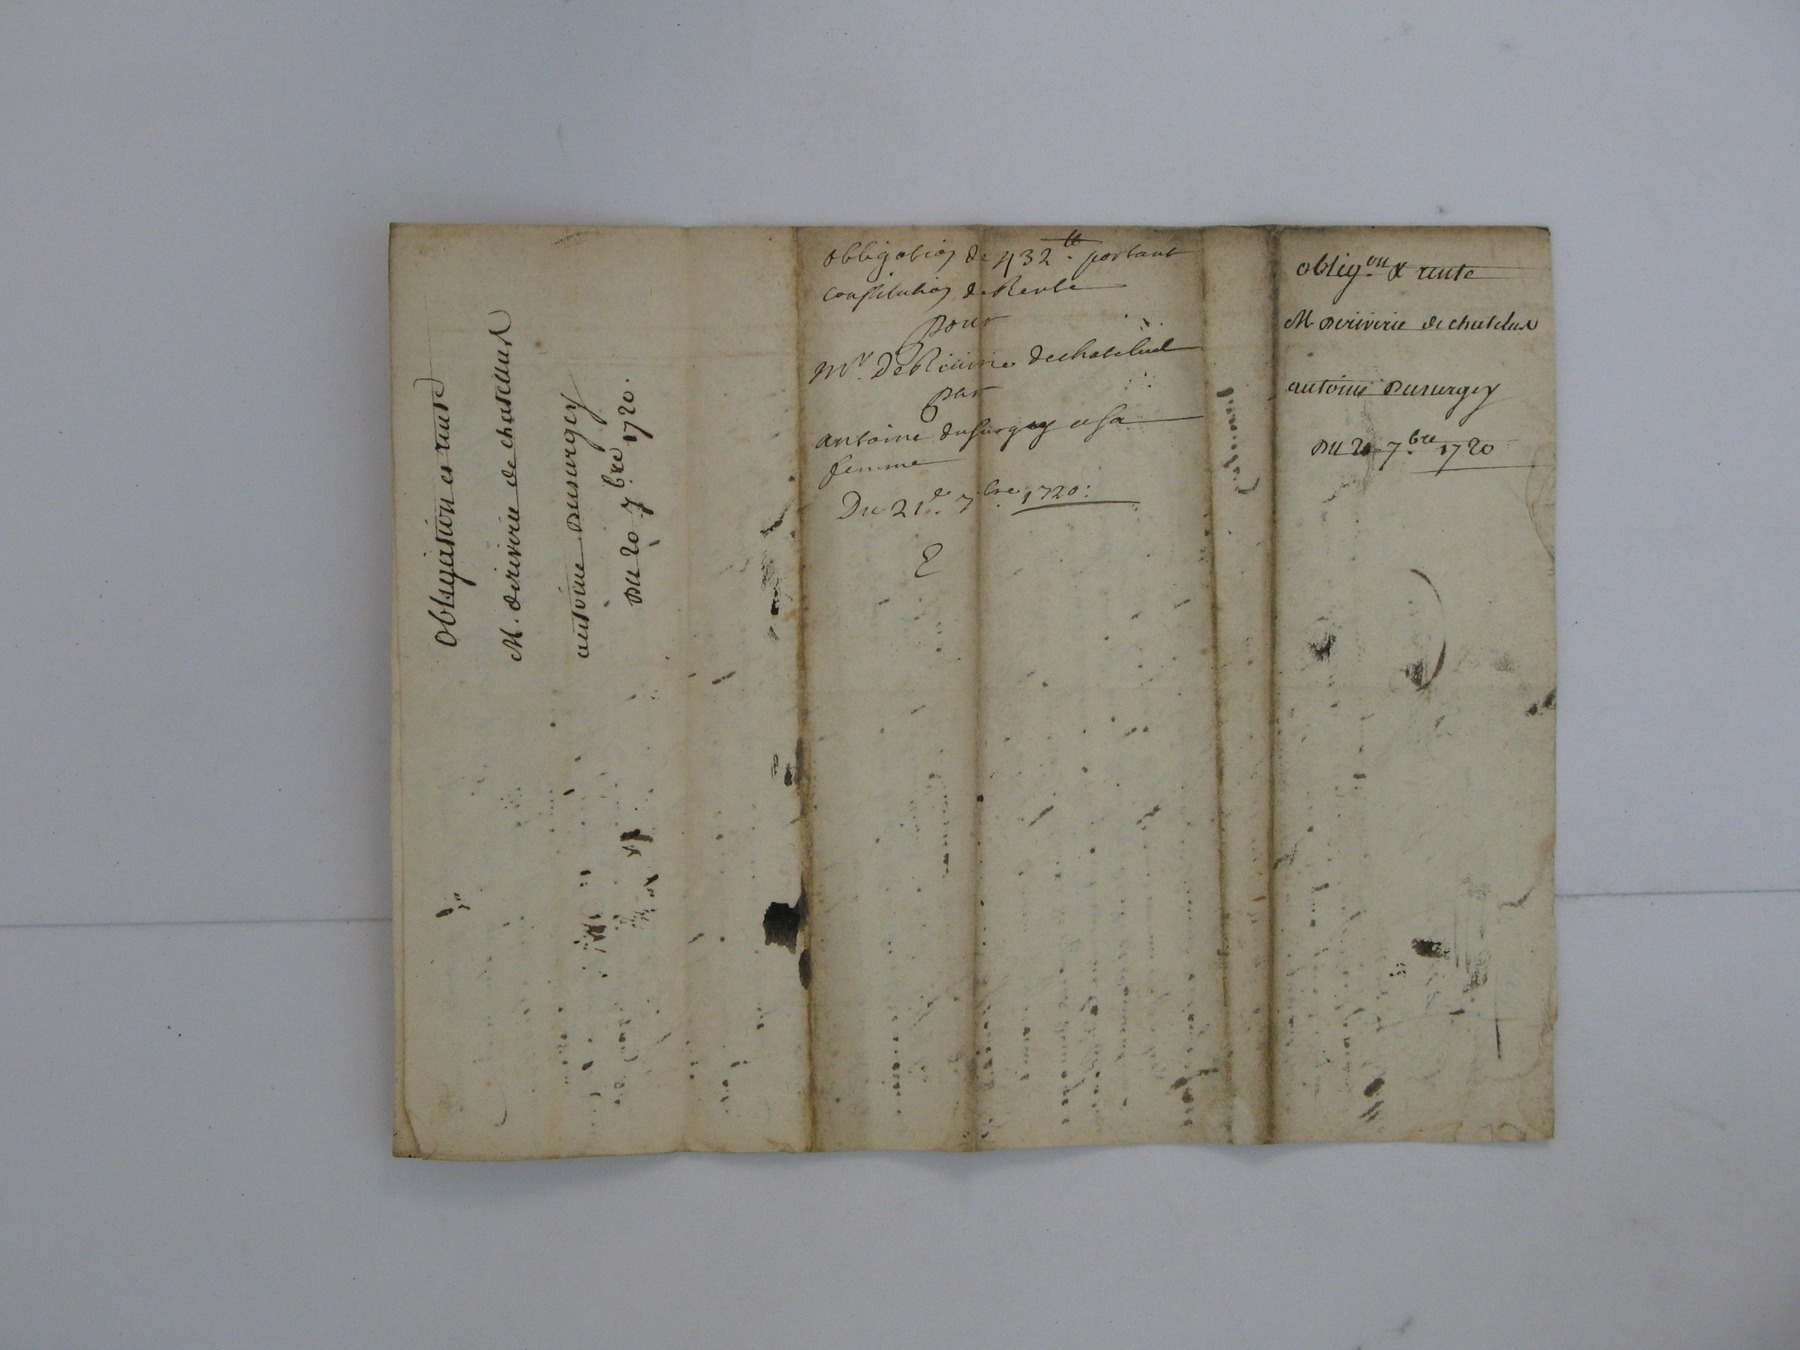 Obligation et rente
M. deriverie de chatelus
antoine Dusurgey
Du 20 7.bre 1720.
obligation de 432 tt. portant
constitution de Rente
pour
Mr. De Riuirie dechatelus
par
antoine dusurgey et sa
femme
Du 21e. 7bre 1720:
oblig.on & rente
M deriverie de chatelus
antoine Dusurgey
Du 20 7.bre 1720